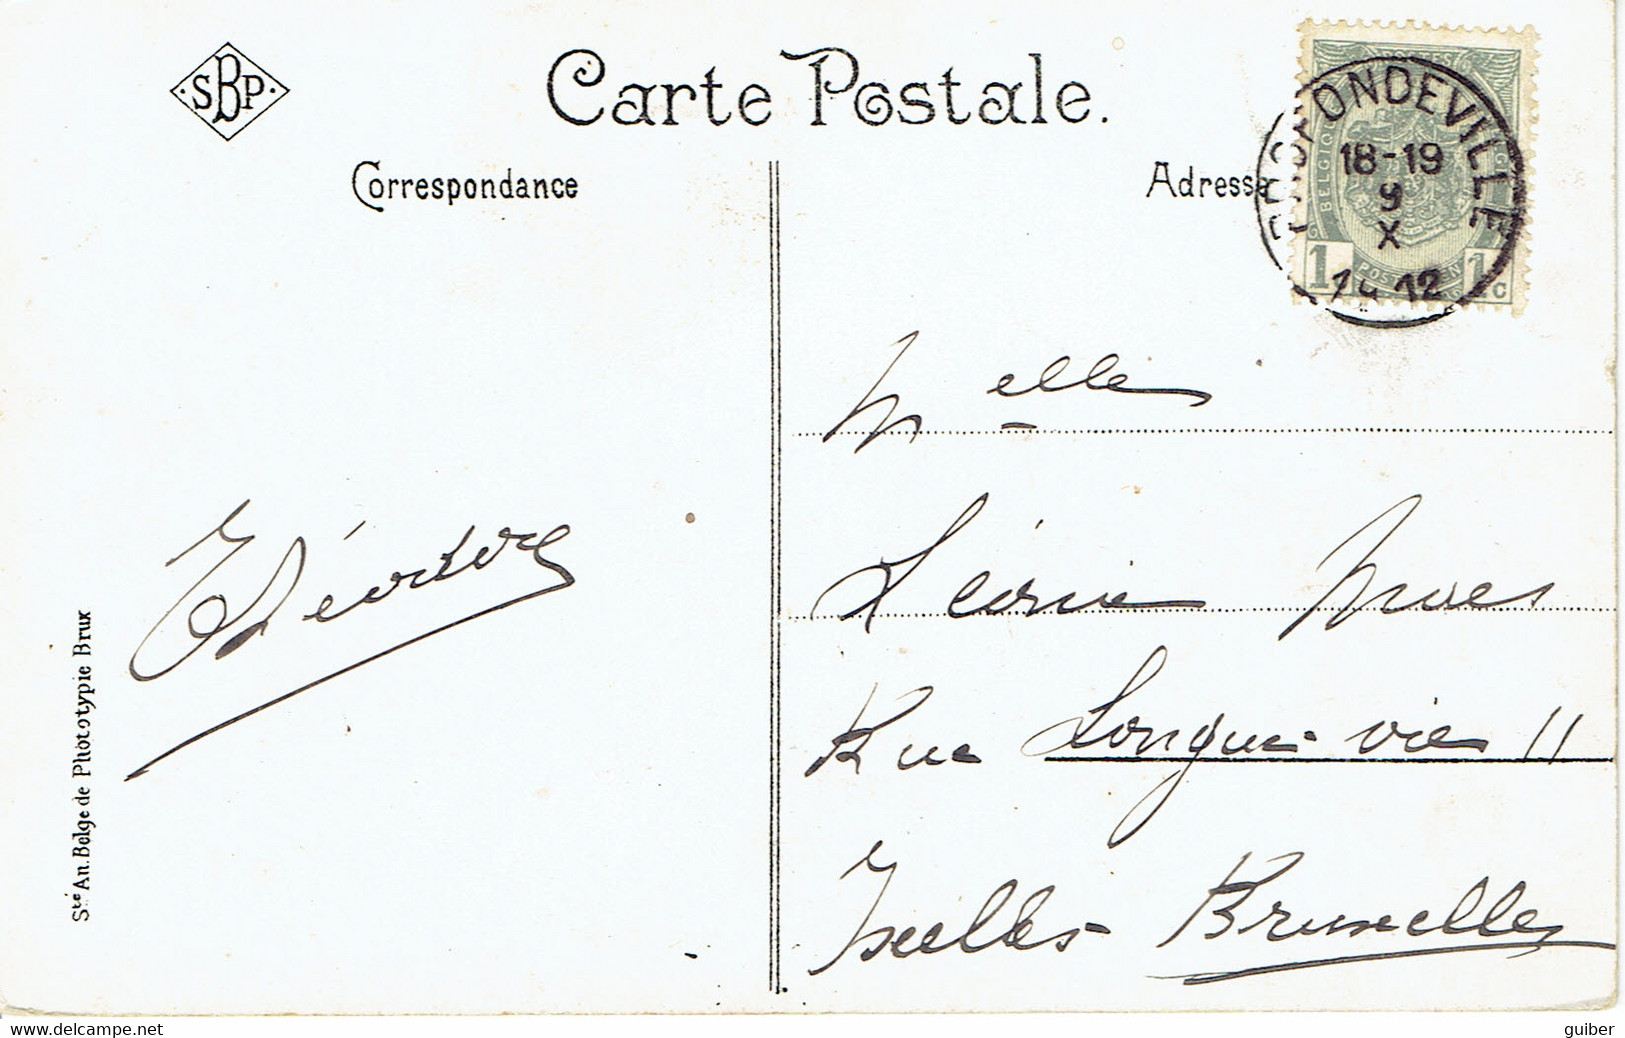 SBP
Carte Postale.
Correspondance
Adresse
PROFONDEVILLE
18-19
9
X
12
BELGIQUE
1
1c
Melle
Rue Longue vie 11
Ixelles Bruxelles
Sté An. Belge de Phototypie Brux
www.delcampe.net
guiber